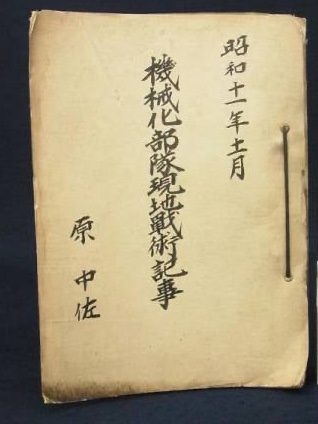 昭和十一年十一月
機械化部隊現地戰術記事
原中佐